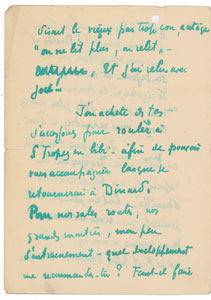 Suivant le vieux pas trop con, adage
"on ne lit plus, on relit"-
Et j'ai relu avec
joie!
J'ai acheté des
pour rouler à
St Tropez en - afin de pouvoir
vous accompagner lorsque je
retournerai à Dinard.
Pour nos sales, routes, nos
grandes montées, mon peu
d'entrainement - quel développement
me recommandes-tu? Faut-il faire